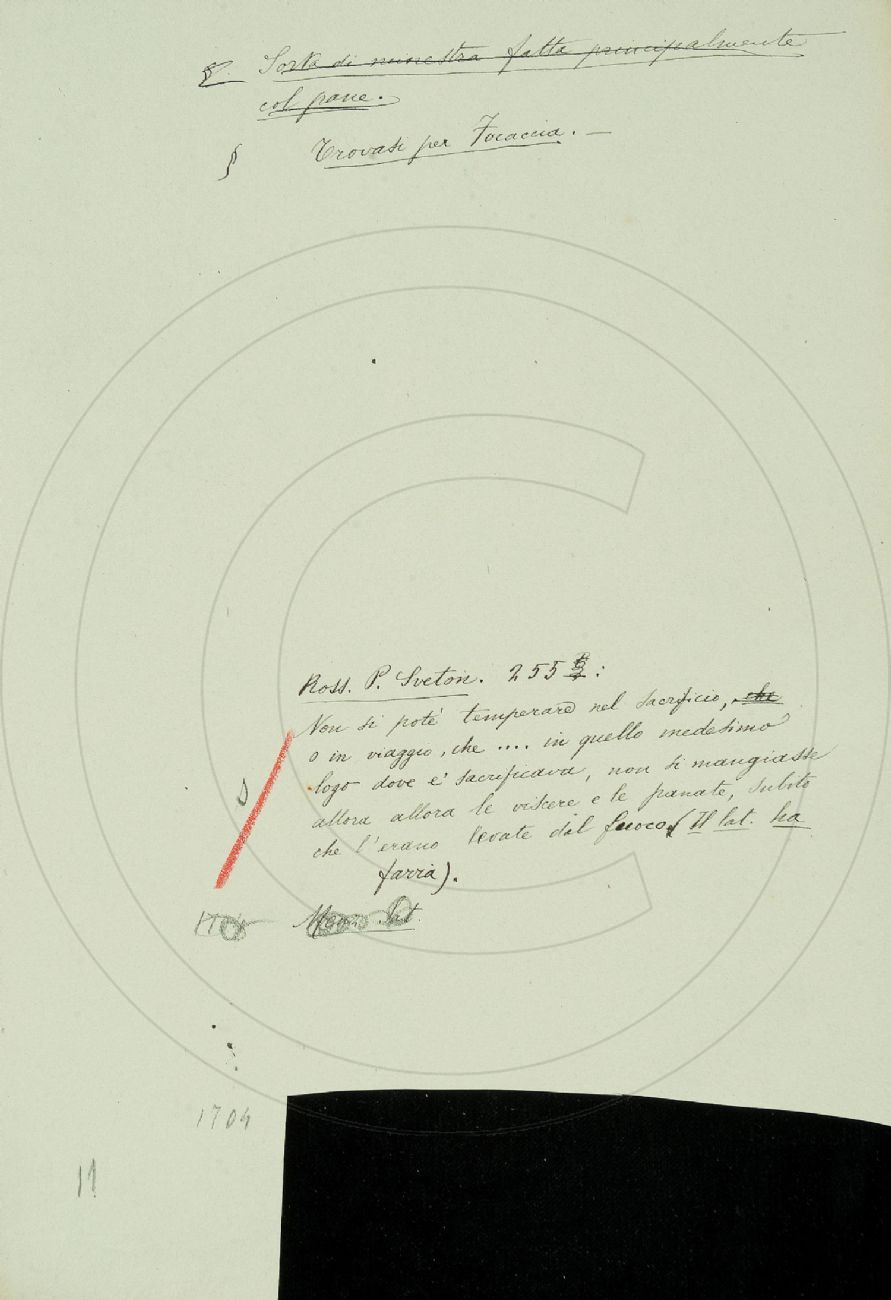 §. Sorta di minestra fatta principalmente
col pane.
§ Trovasi per Focaccia. —
Ross. P. Sveton. 255 :
Non si poté temperare nel sacrificio, che
o in viaggio, che .... in quello medesimo
logo dove e' sacrificava, non si mangiasse
allora allora le viscere e le panate, subito
che l'erano levate dal fuoco (Il lat. ha
farra).
1704
11